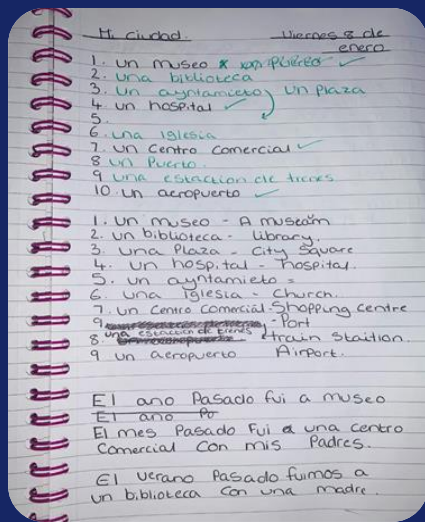 Mi ciudad. Viernes 8 de
enero
1. un museo
2. una biblioteca
3. un ayntamieto un plaza
4. un hospital
5.
6. una iglesia
7. un centro comercial
8 un Puerto.
9 una estaction de trenes
10. un aeropuerto
1. un museo - A museam
2. un biblioteca - library.
3. una Plaza - City Square
4. un hospital - hospital.
5. un ayntamieto =
6. una iglesia - Church.
7. un centro comercial - Shopping centre
9 - Port
8. una estaction de trenes train Staition.
9 un aeropuerto Airport.
El ano Pasado fui a museo
El ano Po
El mes Pasado Fui a una centro
comercial con mis Padres.
El verano Pasado fuimos a
un biblioteca con una madre.